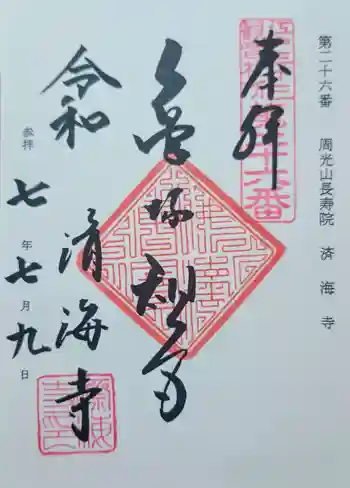 第二十六番 周光山長寿院 済海寺
奉拝
亀塚観音
済海寺
令和
参拝 七年七月九日